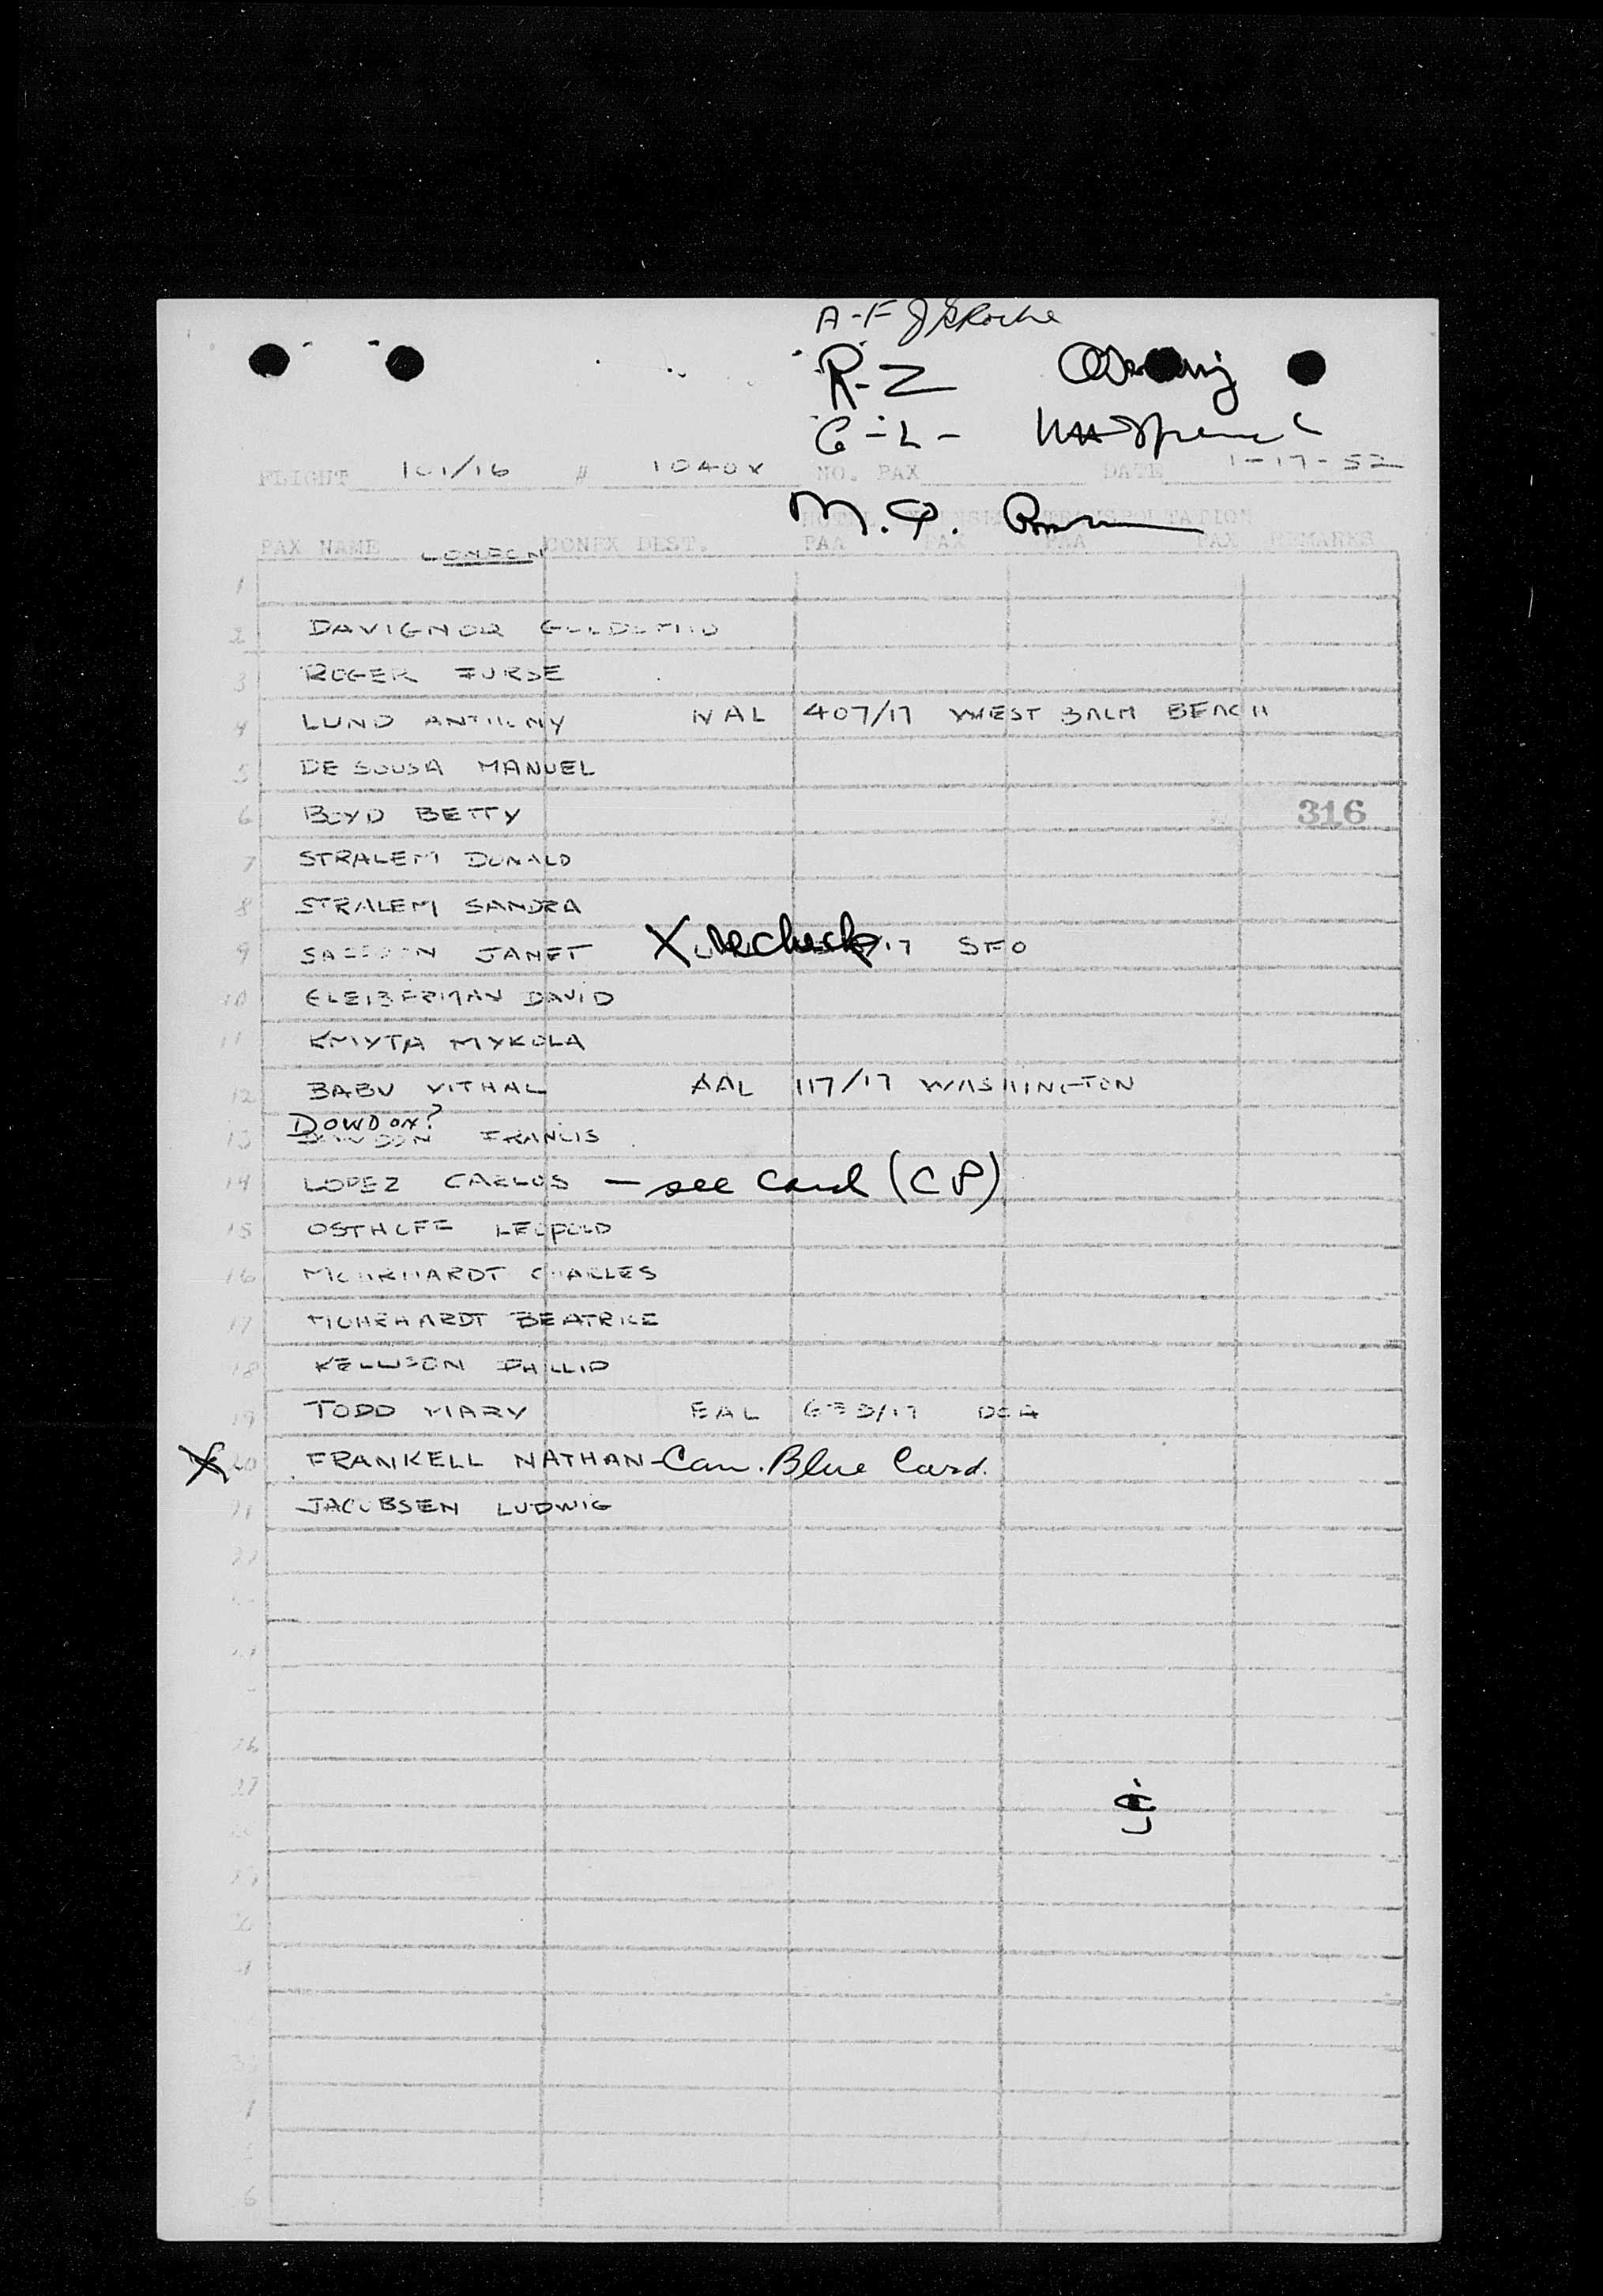 A-F
R-Z
G-L-
FLIGHT 101/16 # 1040X NO. PAX DATE 1-17-52
M.Q.
TRANSPORTATION
PAX NAME LONDON CONEX DEST. PAA PAX PAA PAX REMARKS
1
2 DAVIGNOR
3 ROGER FURSE
4 LUND ANTHONY NAL 407/17 WEST BALM BEACH
5 DE SOUSA MANUEL
6 BOYD BETTY 316
7 STRALEM DONALD
8 STRALEM SANDRA
9 SASSOON JANET X recheck 17 SFO
10 GLEIBERMAN DAVID
11 KMYTA MYKOLA
12 BABU VITHAL AAL 117/17 WASHINGTON
DOWDON?
13 FRANCIS
14 LOPEZ CARLOS - see card (CP)
15 OSTHOFF LEOPOLD
16 MOHRHARDT CHARLES
17 MOHRHARDT BEATRICE
18 KELLISON PHILLIP
19 TODD MARY EAL DCA
X 20 FRANKELL NATHAN - Can. Blue Card.
21 JACOBSEN LUDWIG
22
26
27